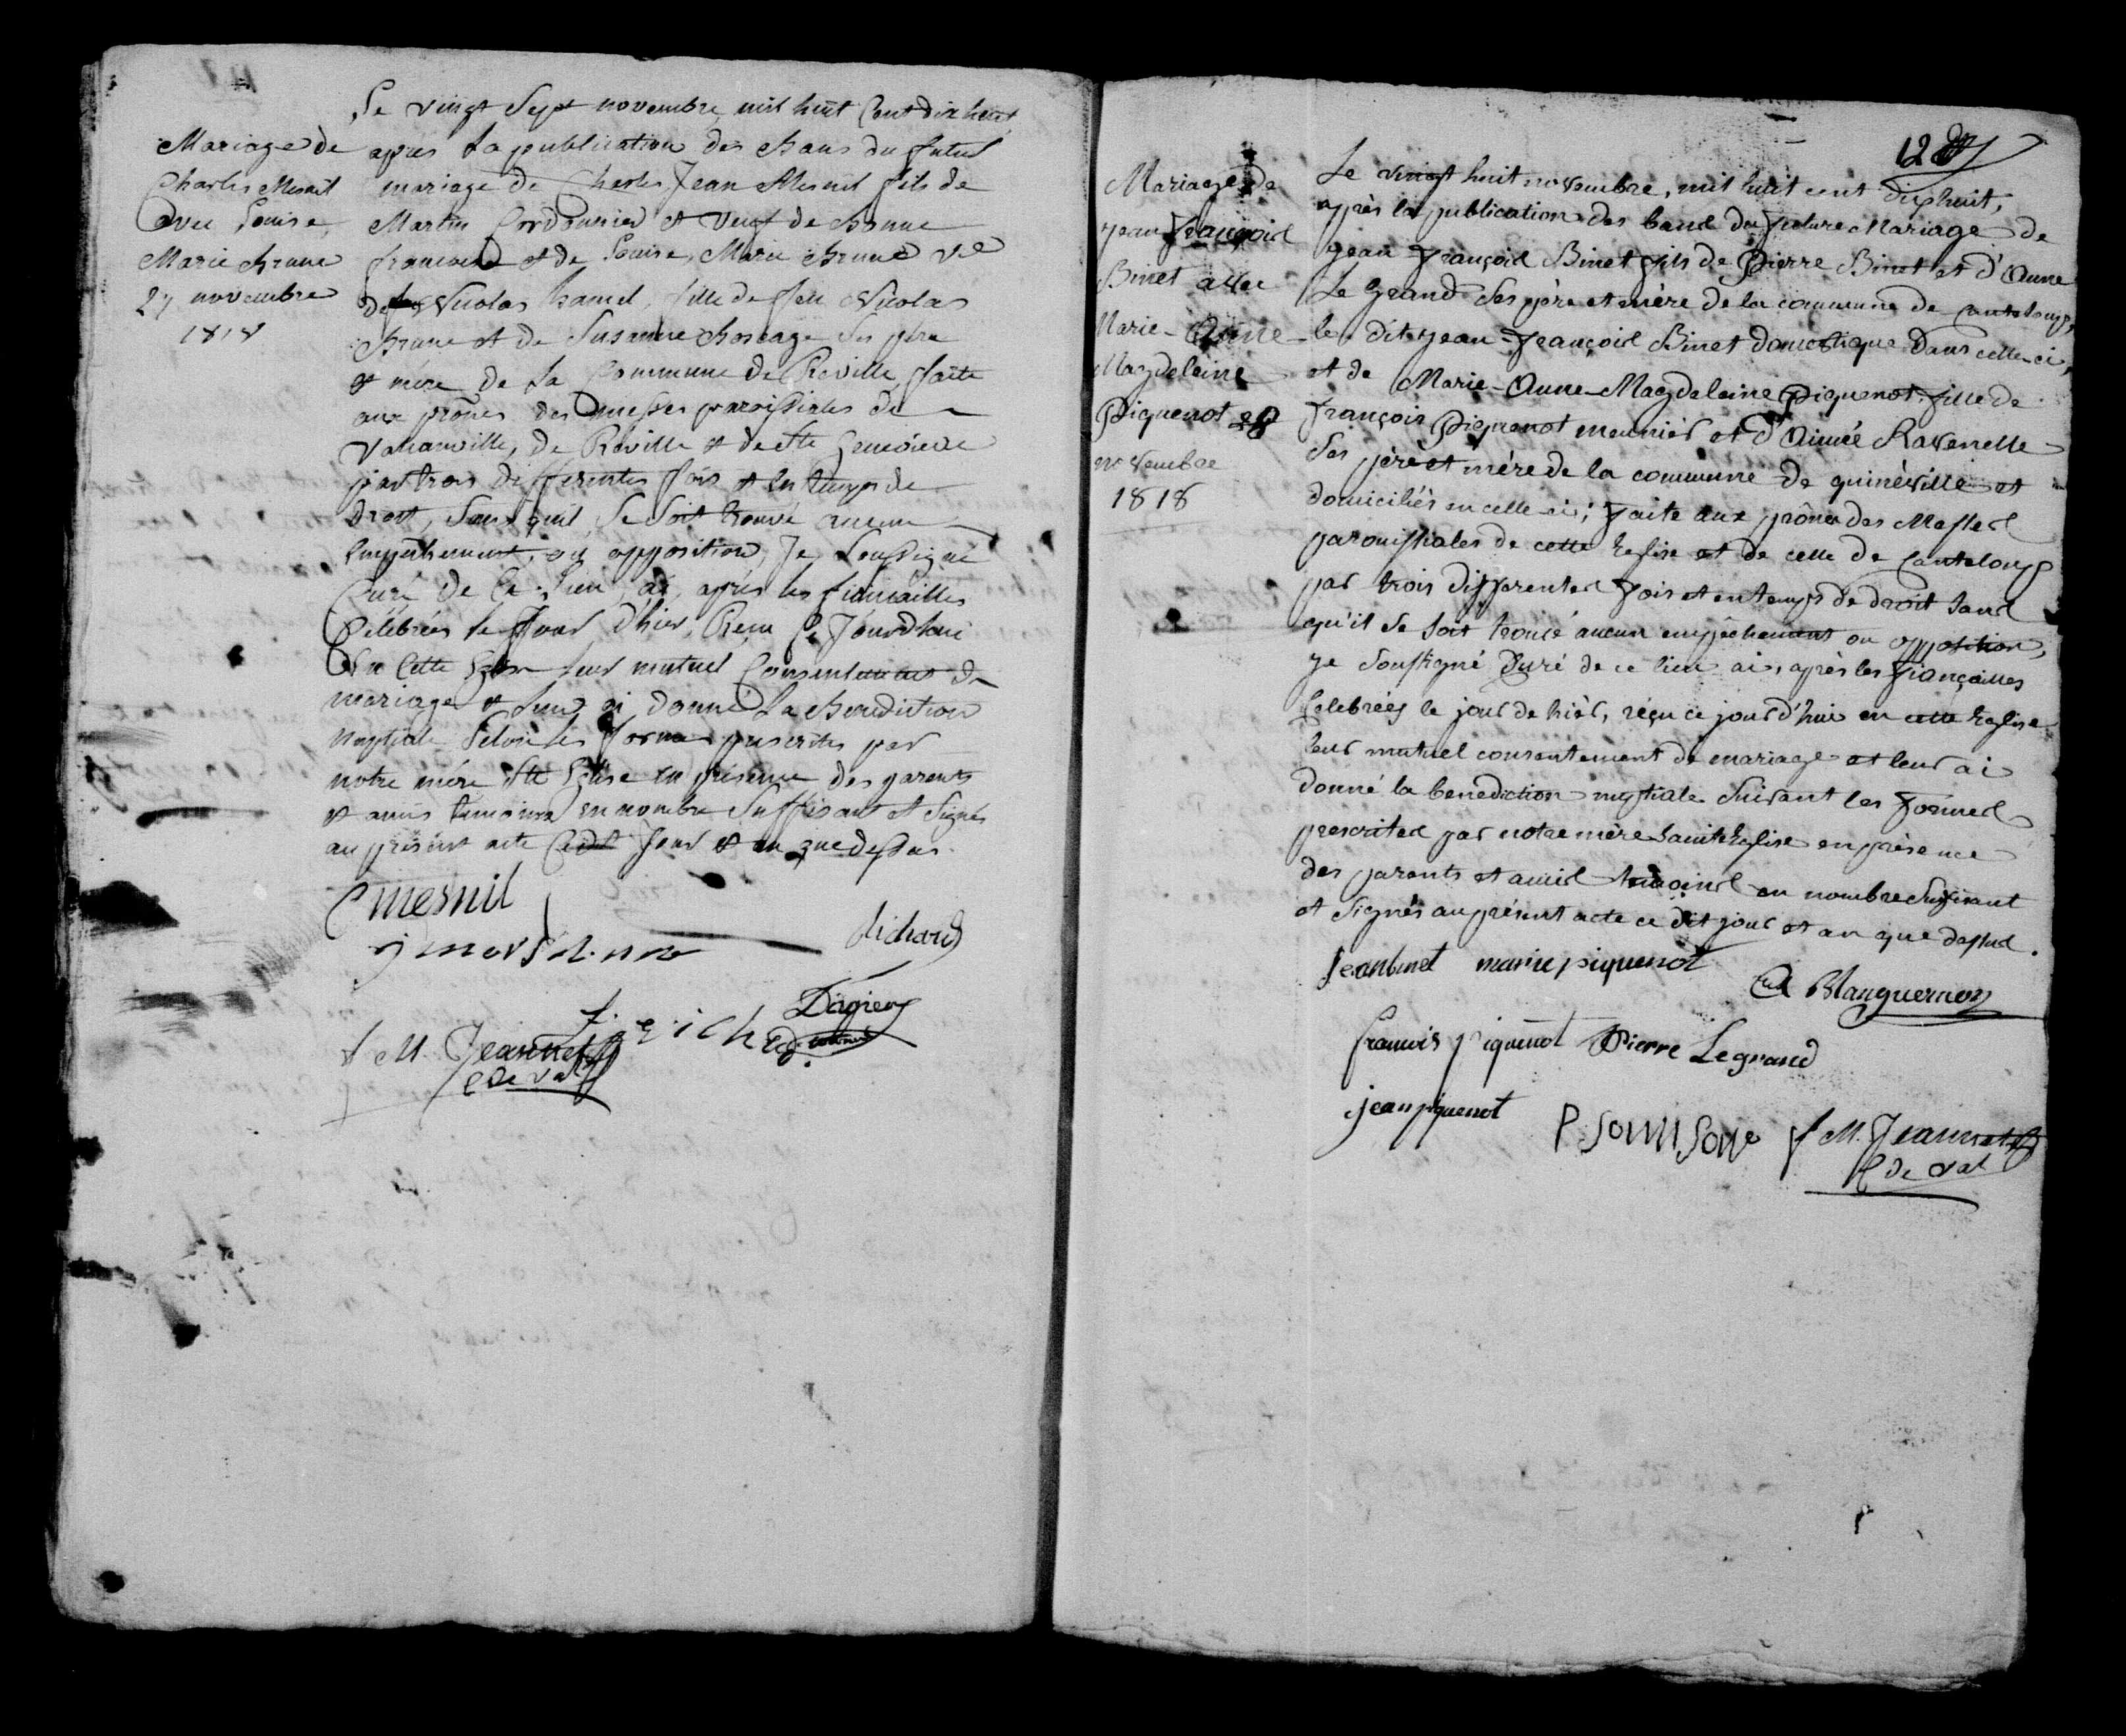 Mariage de
Charles Mesnil
avec Louise
Marie Brune
27 novembre
1818
Le vingt Sept novembre mil huit Cent dix huit
après la publication des Bans du futur
mariage de Charles Jean Mesnil fils de
Martin Cordonnier et Veuf de
francoise et de Louise, Marie Brune Ve
de Nicolas hamel, fille de feu Nicolas
Brune et de Susanne Boscage ses père
et mére de la Commune de Reville, faite
aux prônes des messes paroissiales de
Valcanville, de Réville et de Ste Genevieve
par trois differentes fois et en temps de
droit, Sans quil se soit trouvé aucun
empechement, ou opposition, Je Soussigné
Curé de Ce lieu ai, après les fiancailles
Célébrées le Jour d'hier, Recu Ce Jourdhui
en Cette Eglise leur mutuel Consentement de
mariage et leur ai donné la Benediction
nuptiale Selon les formes prescrites par
notre mére Ste Eglise en présence des parents
et amis temoins en nombre Suffisant et Signés
au présent acte Cedit Jour et an que dessus.
C mesnil
Richard
f. M. Jeannet
C de Val
12
Mariage de
jean François
Binet avec
Marie-Anne
Magdeleine
Piquenot 28
novembre
1818
Le vingt huit novembre, mil huit cent dixhuit,
après la publication des bans du future Mariage de
jean François Binet fils de Pierre Binet et d'Anne
Le Grand ses père et mère de la commune de canteloup,
le dit jean-François Binet domestique dans celle-ci,
et de Marie-Anne-Magdeleine Piquenot, fille de
François Piquenot meunier et d'Aimée Ravenelle
ses père et mère de la commune de quinéville et
domiciliés en celle-ci; Faite aux prônes des Messes
paroissiales de cette Eglise et de celle de Canteloup
par trois differentes Fois et en temps de droit sans
qu'il se soit trouvé aucun empêchement ou opposition,
je Soussigné Curé de ce lieu ai, après les Fiançailles
Celebrées le jour de hièr, réçu ce jour d'hui en cette Eglise
leur mutuel consentement de mariage et leur ai
donné la benediction nuptiale Suivant les Formes
prescrites par notre mère Sainte Eglise en présence
des parents et amis temoins en nombre Suffisant
et Signés au présent acte ce dit jour et an que dessus.
Jean binet marie piquenot
A Blanguernon
francois piquenot Pierre Legrand
jean piquenot
P. Samson f. M. Jeannet
C de Val